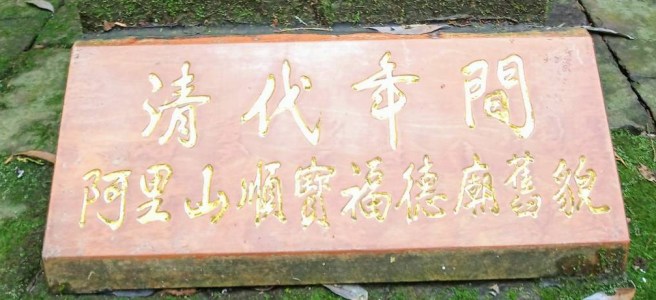 清代年間
阿里山順寶福德廟舊貌